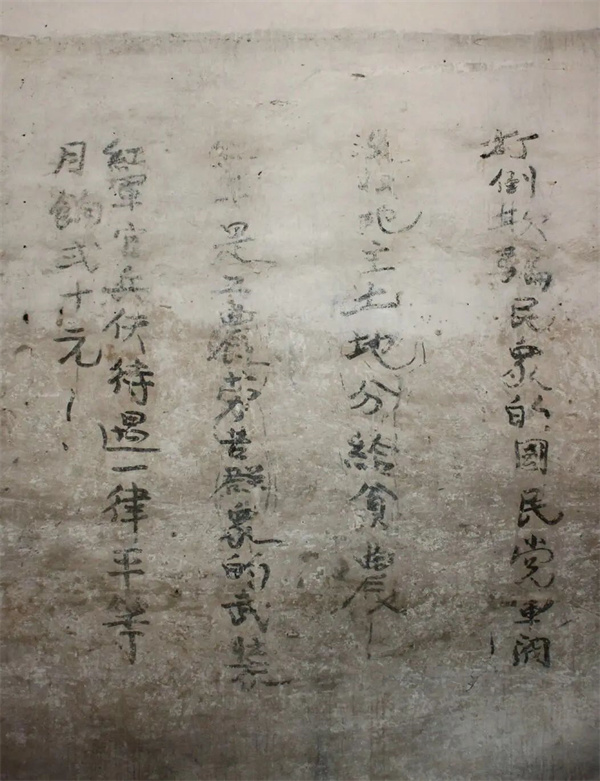 打倒欺骗民衆的國民党軍阀
沒收地主土地分給貧農
紅军是工農劳苦群衆的武装
紅軍官兵伕待遇一律平等
月餉式十元